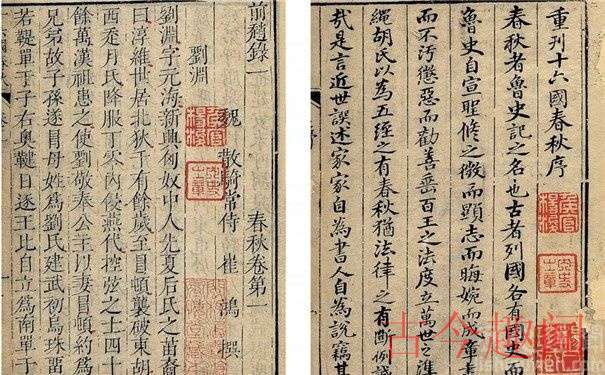 重刊十六國春秋序
春秋者魯史記之名也古者列國各有國史而
魯史自宣聖脩之微而顯志而晦婉而成章
而不汚懲惡而勸善垂百王之法度立萬世之準
繩胡氏以為五經之有春秋猶法律之有斷例誠
哉是言近世誤述家家自為書人自為說竊其
前趙錄一 春秋卷第一
魏 散騎常侍 崔鴻 撰
劉淵
劉淵字元海新興匈奴中人先夏后氏之苗裔
曰淳維世居北狄千有餘歲至冒頓襲破東胡
西走月氏降服丁零內侵燕代控弦之士四十
餘萬漢祖患之使劉敬奉公主以妻冒頓約爲
兄弟故子孫遂冒母姓爲劉氏建武初烏珠留
若鞮單于子右奧鞬日逐王比自立爲南單于
古今趣闻